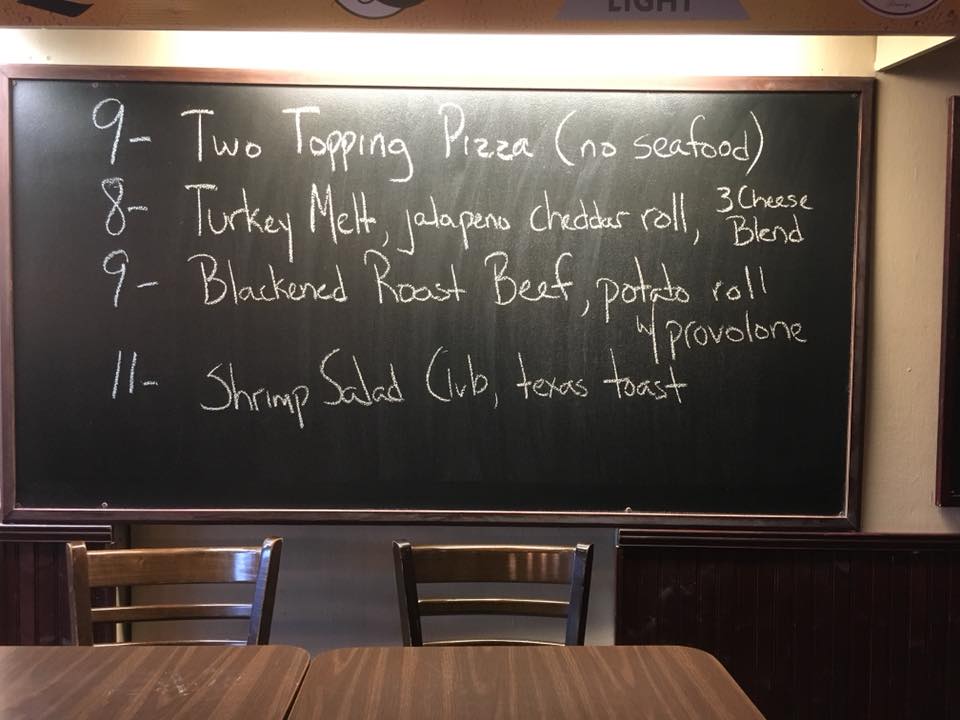 LIGHT
9- Two Topping Pizza (no seafood)
8- Turkey Melt, jalapeno cheddar roll, 3 Cheese
Blend
9- Blackened Roast Beef, potato roll
w/ provolone
11- Shrimp Salad Club, texas toast